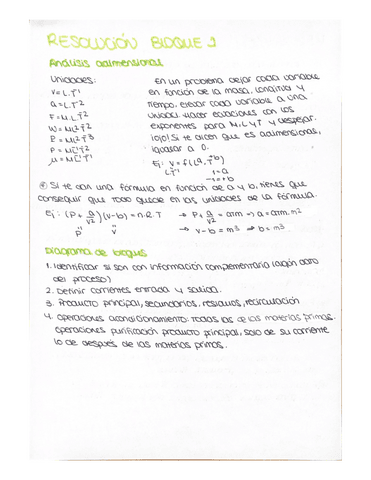 RESOLUCIÓN BLOQUE 1
Análisis adimensional
Unidades:
V = L.T⁻¹
a = L.T⁻²
F = M.L.T⁻²
W = ML²T⁻²
P = ML²T⁻³
P = ML⁻¹T⁻²
μ = ML⁻¹T⁻¹
En un problema dejar cada variable
en función de la masa, longitud y
tiempo, elevar cada variable a una
unidad. Hacer ecuaciones con los
exponentes para M, L y T y despejar.
¡ojo! Si te dicen que es adimensional,
igualar a 0.
Ej: V = f(L^a, T^-b)
L.T⁻¹
1 = a
-1 = -b
Si te dan una fórmula en función de a y b, tienes que
conseguir que todo quede en las unidades de la fórmula.
Ej: (P + a/V²)(V-b) = n.R.T → P + a/V² = atm → a = atm.m²
P V → V - b = m³ → b = m³
Diagrama de bloques
1. Identificar si son con información complementaria (algún dato
del proceso)
2. Definir corrientes entrada y salida.
3. Producto principal, secundarios, residuos, recirculación
4. Operaciones acondicionamiento: todas las de las materias primas.
operaciones purificación producto principal, solo de su corriente
lo de después de las materias primas.